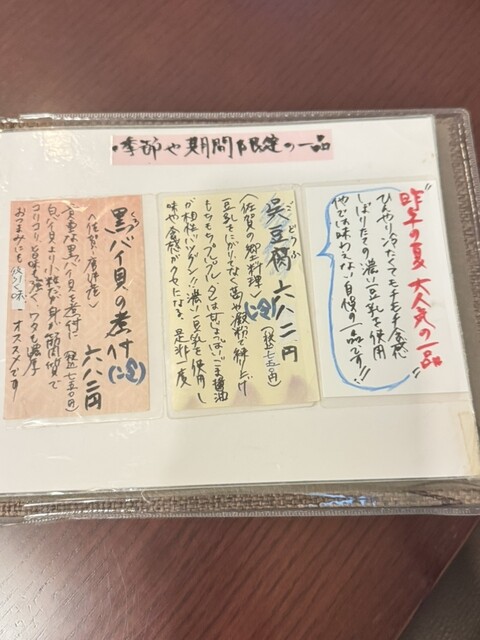 ・季節や期間限定の一品
"昨年の夏 大人気の一品"
ひんやり冷たくてモチモチ食感
しぼりたての濃い豆乳を使用
他では味わえない自慢の一品です!!
ごどうふ
呉豆腐 六八二円
(税込七五〇円)
〈佐賀の郷土料理〉
豆乳をにがりでなく葛や澱粉で練り上げ
もちもちプルップル タレは甘じょっぱいごま醤油
が相性バツグン!! 濃い豆乳を使用し
味や食感がクセになる。是非一度
黒バイ貝の煮付
くろ
六八二円
〈佐賀 唐津産〉
貴重な黒バイ貝を煮付 (税込七五〇円)
白バイ貝より小粒だが身が筋肉質で
コリコリと旨味も強く、ワタも濃厚
おつまみにも オススメです